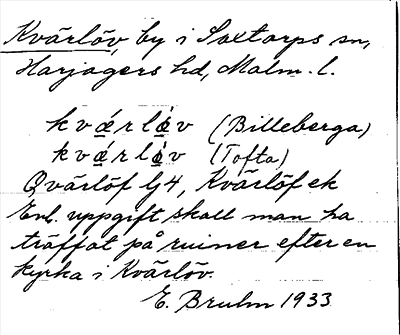 Kvärlöv, by i Saxtorps sn,
Harjagers hd, Malm. l.
kvǽrlǿv (Billeberga)
kvǽrlǿv (Tofta)
Qvärlöf lj4, Kvärlöf ek
Enl. uppgift skall man ha
träffat på ruiner efter en
kyrka i Kvärlöv.
E. Bruhn 1933